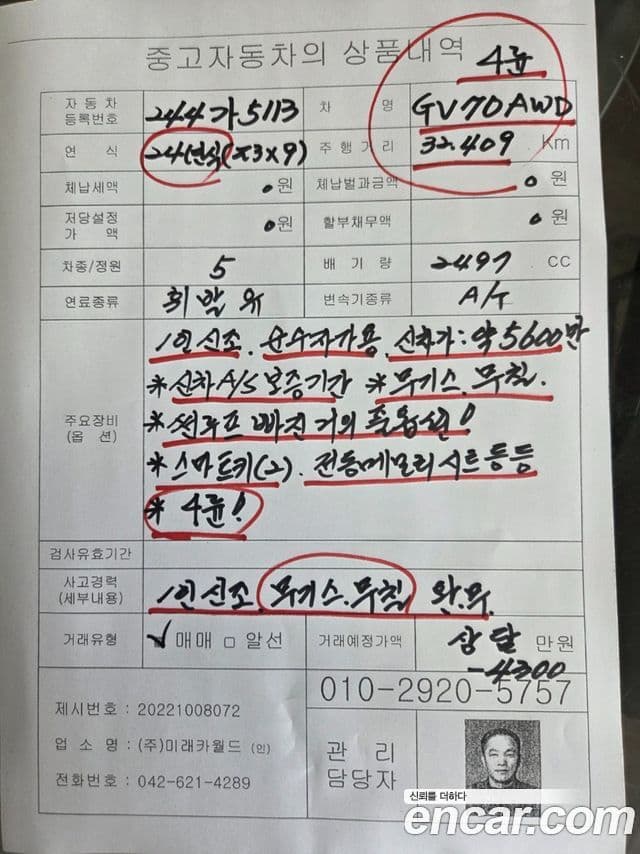 중고자동차의 상품내역
4륜
자동차 등록번호 244가5113 차 명 GV70AWD
연 식 24년식(23×9) 주행거리 32.409 Km
체납세액 0원 체납벌과금액 0원
저당설정 가 액 0원 할부채무액 0원
차종/정원 5 배 기 량 2497 CC
연료종류 휘발유 변속기종류 A/T
주요장비 (옵 션)
1인신조. 순수자가용. 신차가: 약5600만
*신차A/S보증기간 *무기스.무칠.
*썬루프 빠진 거의 풀옵션!
*스마트키(2). 전동메모리시트등등
*4륜!
검사유효기간
사고경력 (세부내용) 1인신조. 무기스.무칠 완.무
거래유형 ✓ 매매 □ 알선 거래예정가액 상담 만원
-4300
010-2920-5757
제시번호 : 20221008072
업 소 명 : (주)미래카월드 (인)
전화번호 : 042-621-4289
관 리
담당자
신뢰를 더하다
encar.com